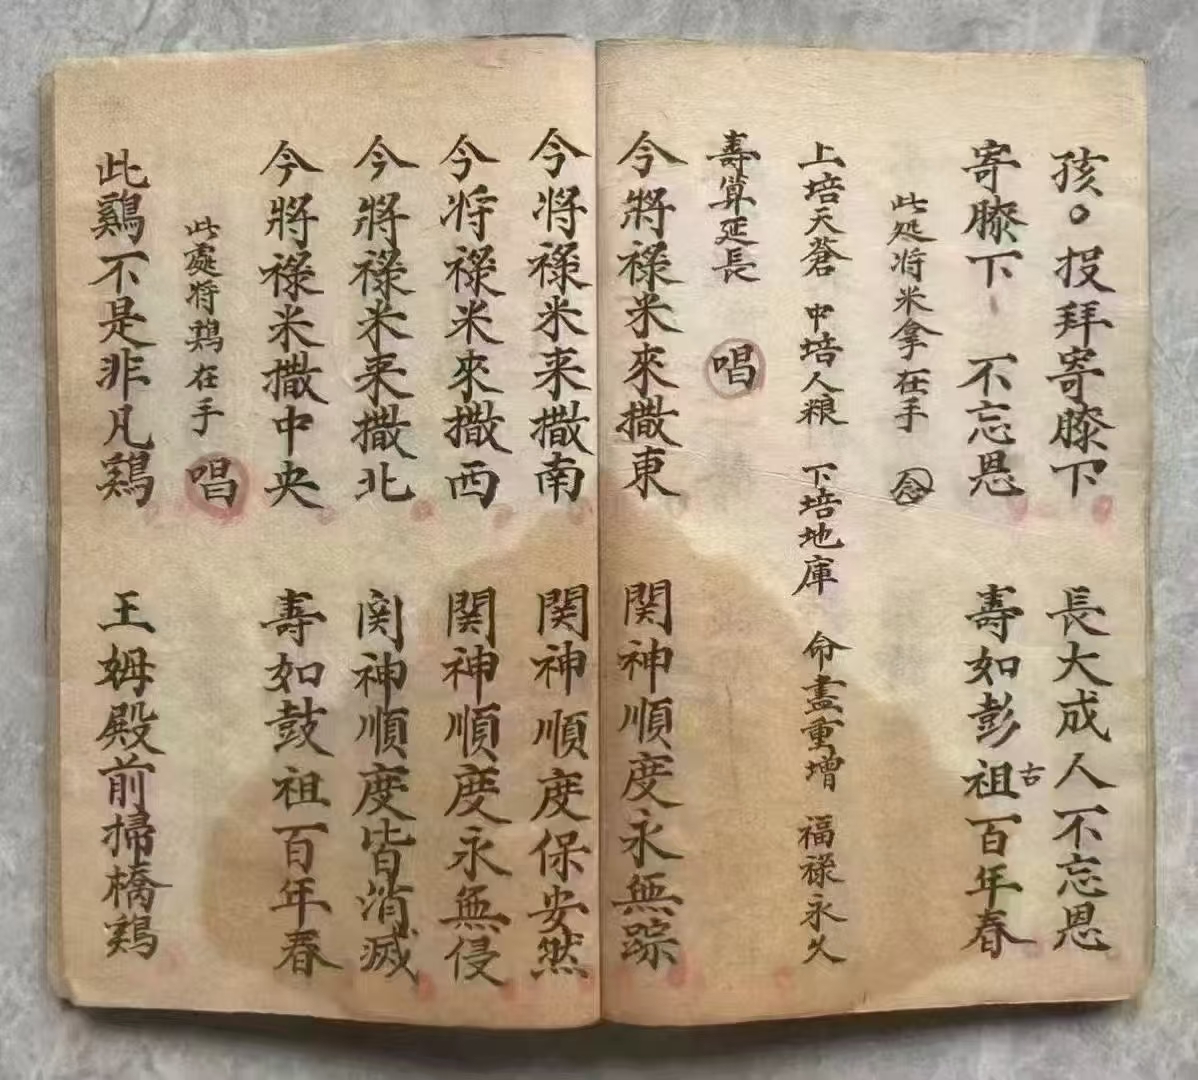 孩。投拜寄膝下 長大成人不忘恩
寄膝下 不忘恩 壽如彭祖古百年春
此处将米拿在手 念
上培天蒼 中培人粮 下培地庫 命盡重增 福禄永久
壽算延長 唱
今將禄米來撒東 関神順度永無踪
今将禄米来撒南 関神順度保安然
今将禄米來撒西 関神順度永無侵
今將禄米来撒北 関神順度皆消滅
今將禄米撒中央 壽如鼓祖百年春
此處将鷄在手 唱
此鷄不是非凡鷄 王姆殿前掃橋鷄